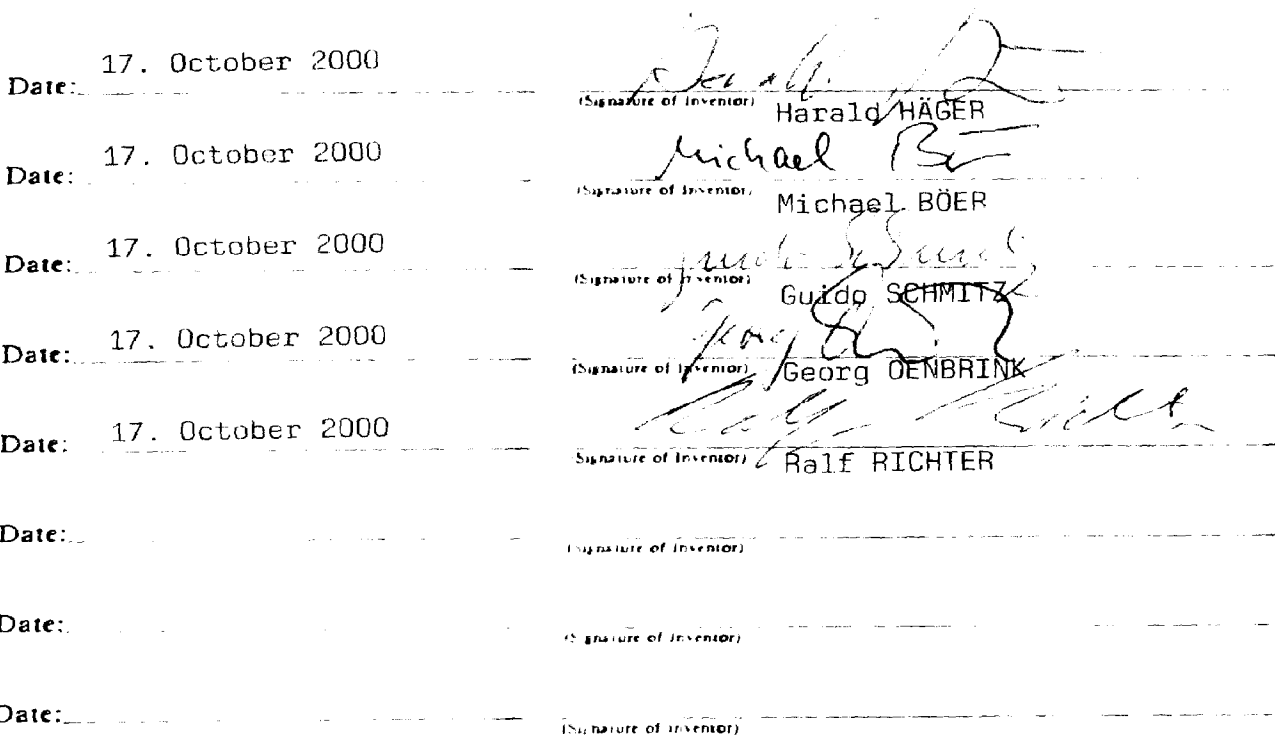 Date: 17. October 2000
(Signature of Inventor) Harald HÄGER
Michael
Date: 17. October 2000
(Signature of Inventor) Michael BÖER
Date: 17. October 2000
(Signature of Inventor) Guido SCHMITZ
Georg
Date: 17. October 2000
(Signature of Inventor) Georg OENBRINK
Ralf Richter
Date: 17. October 2000
(Signature of Inventor) Ralf RICHTER
Date:
(Signature of Inventor)
Date:
(Signature of Inventor)
Date:
(Signature of Inventor)